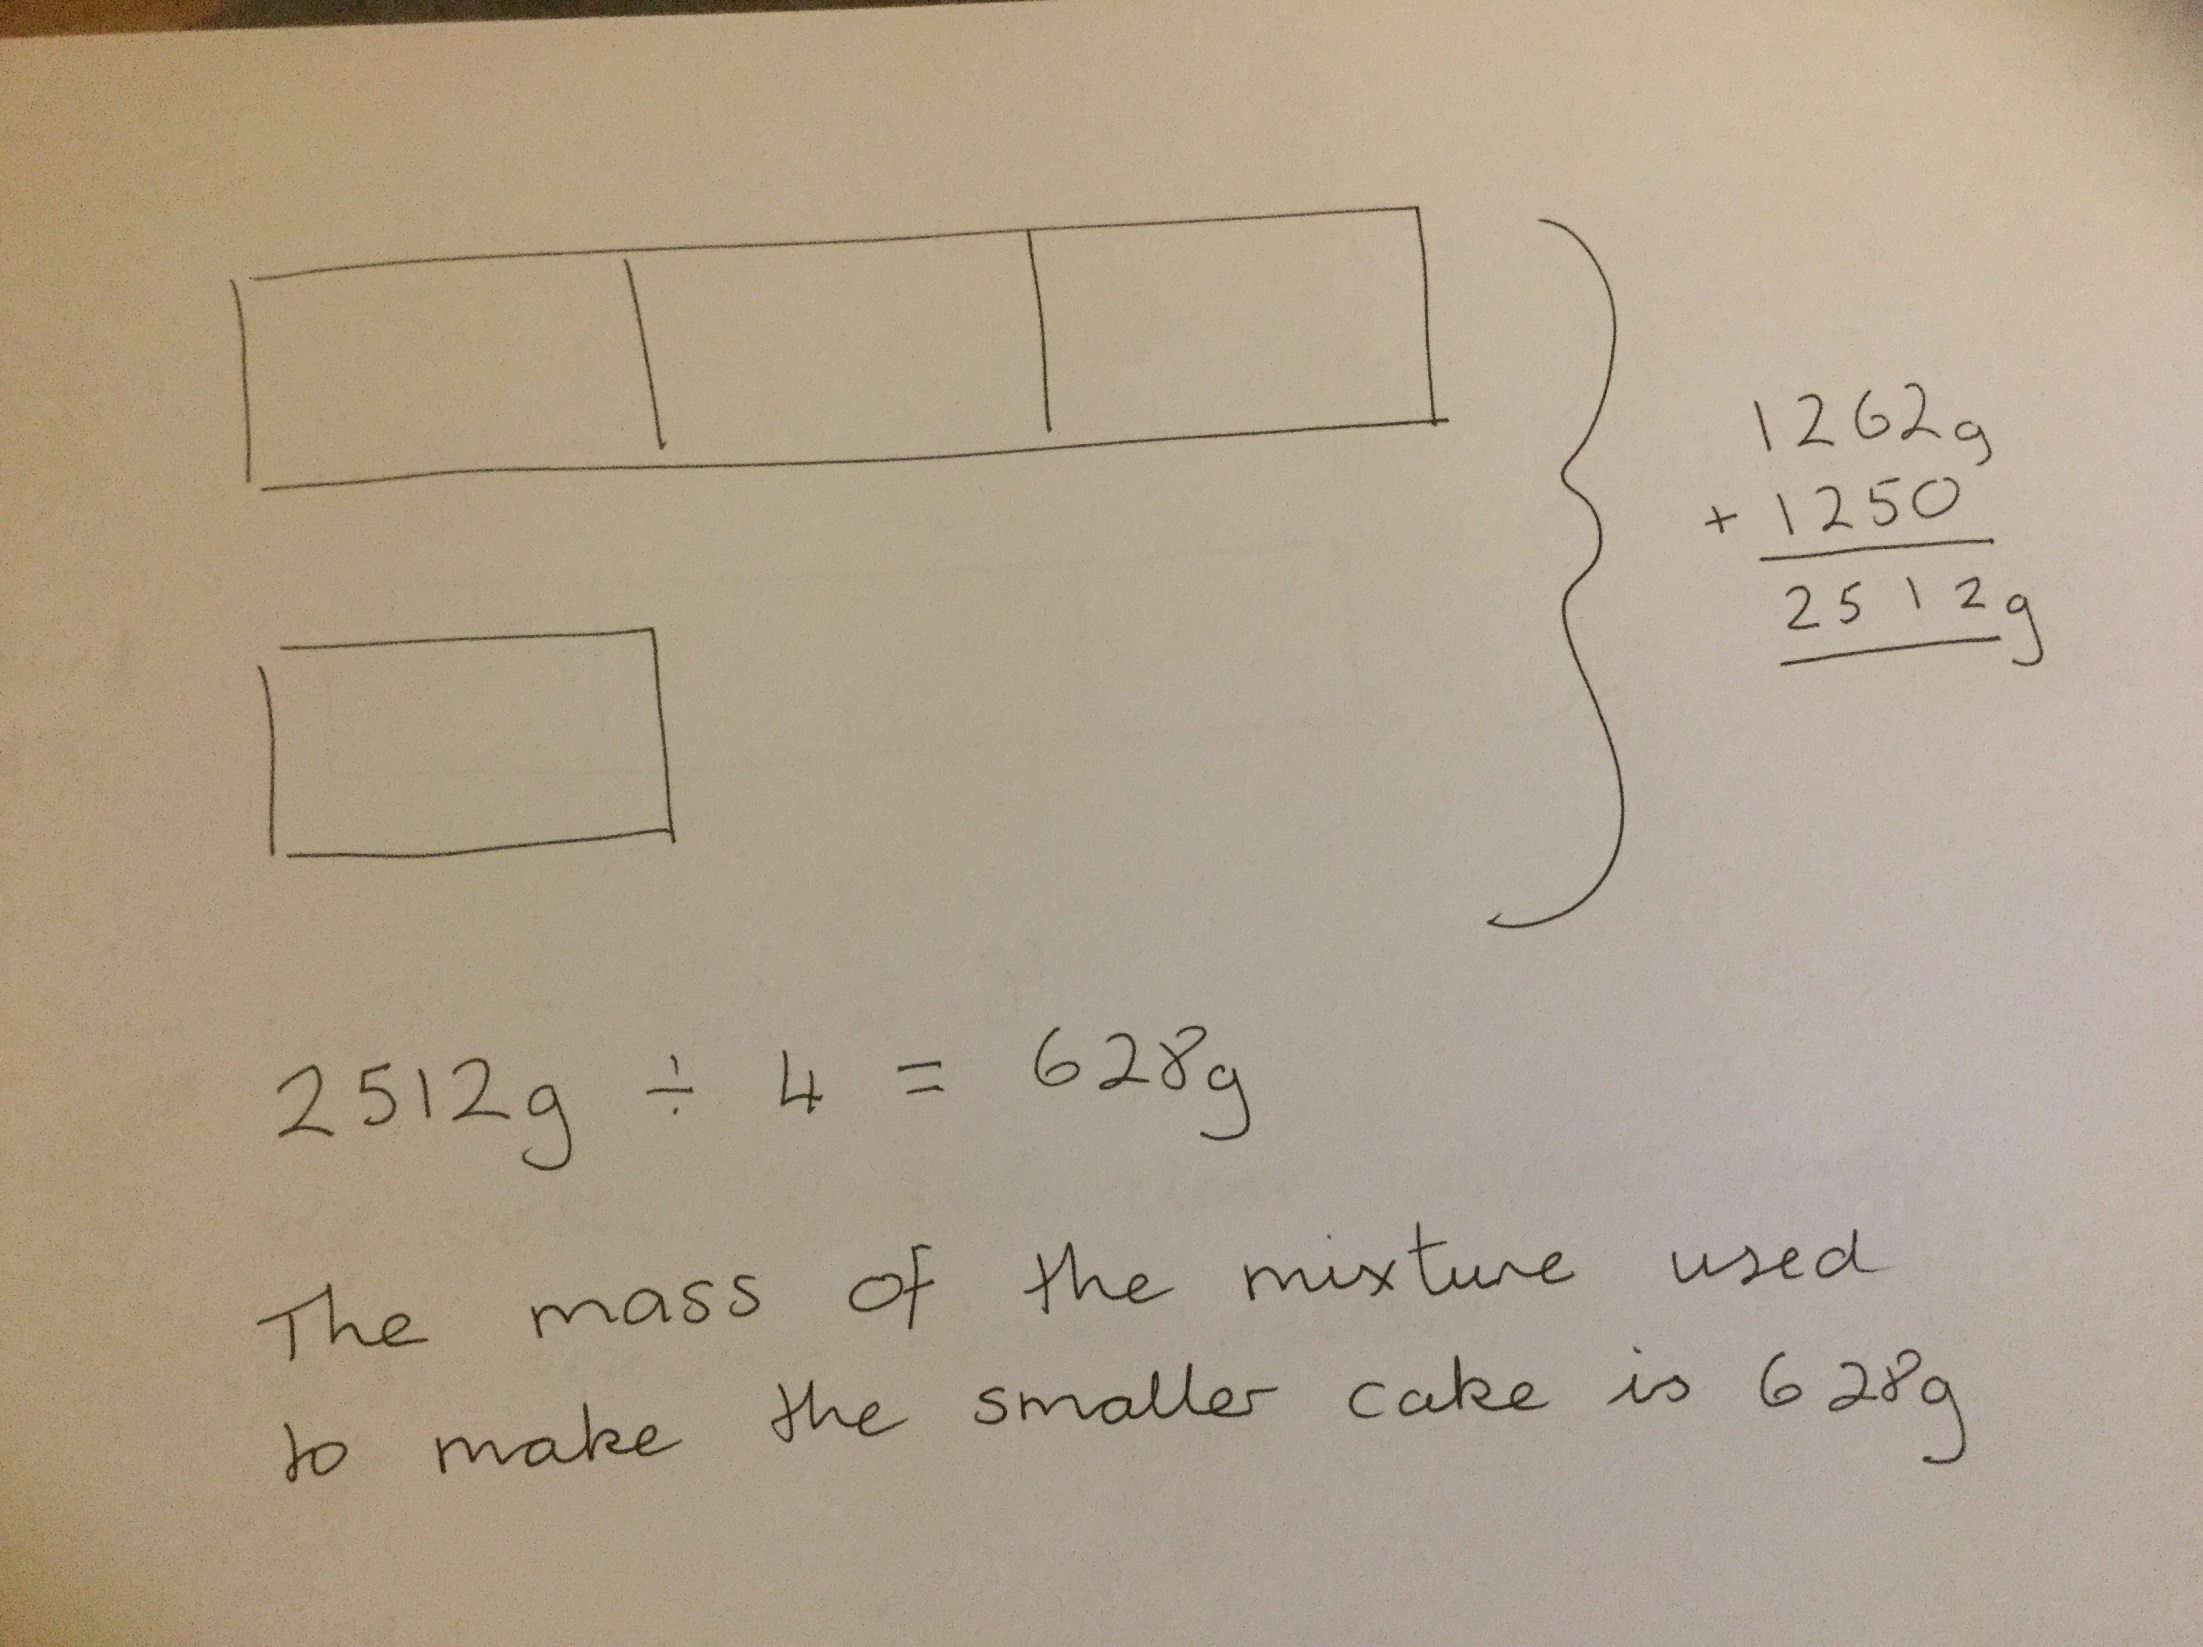 1262g
+ 1250
2512g
2512g ÷ 4 = 628g
The mass of the mixture used
to make the smaller cake is 628g